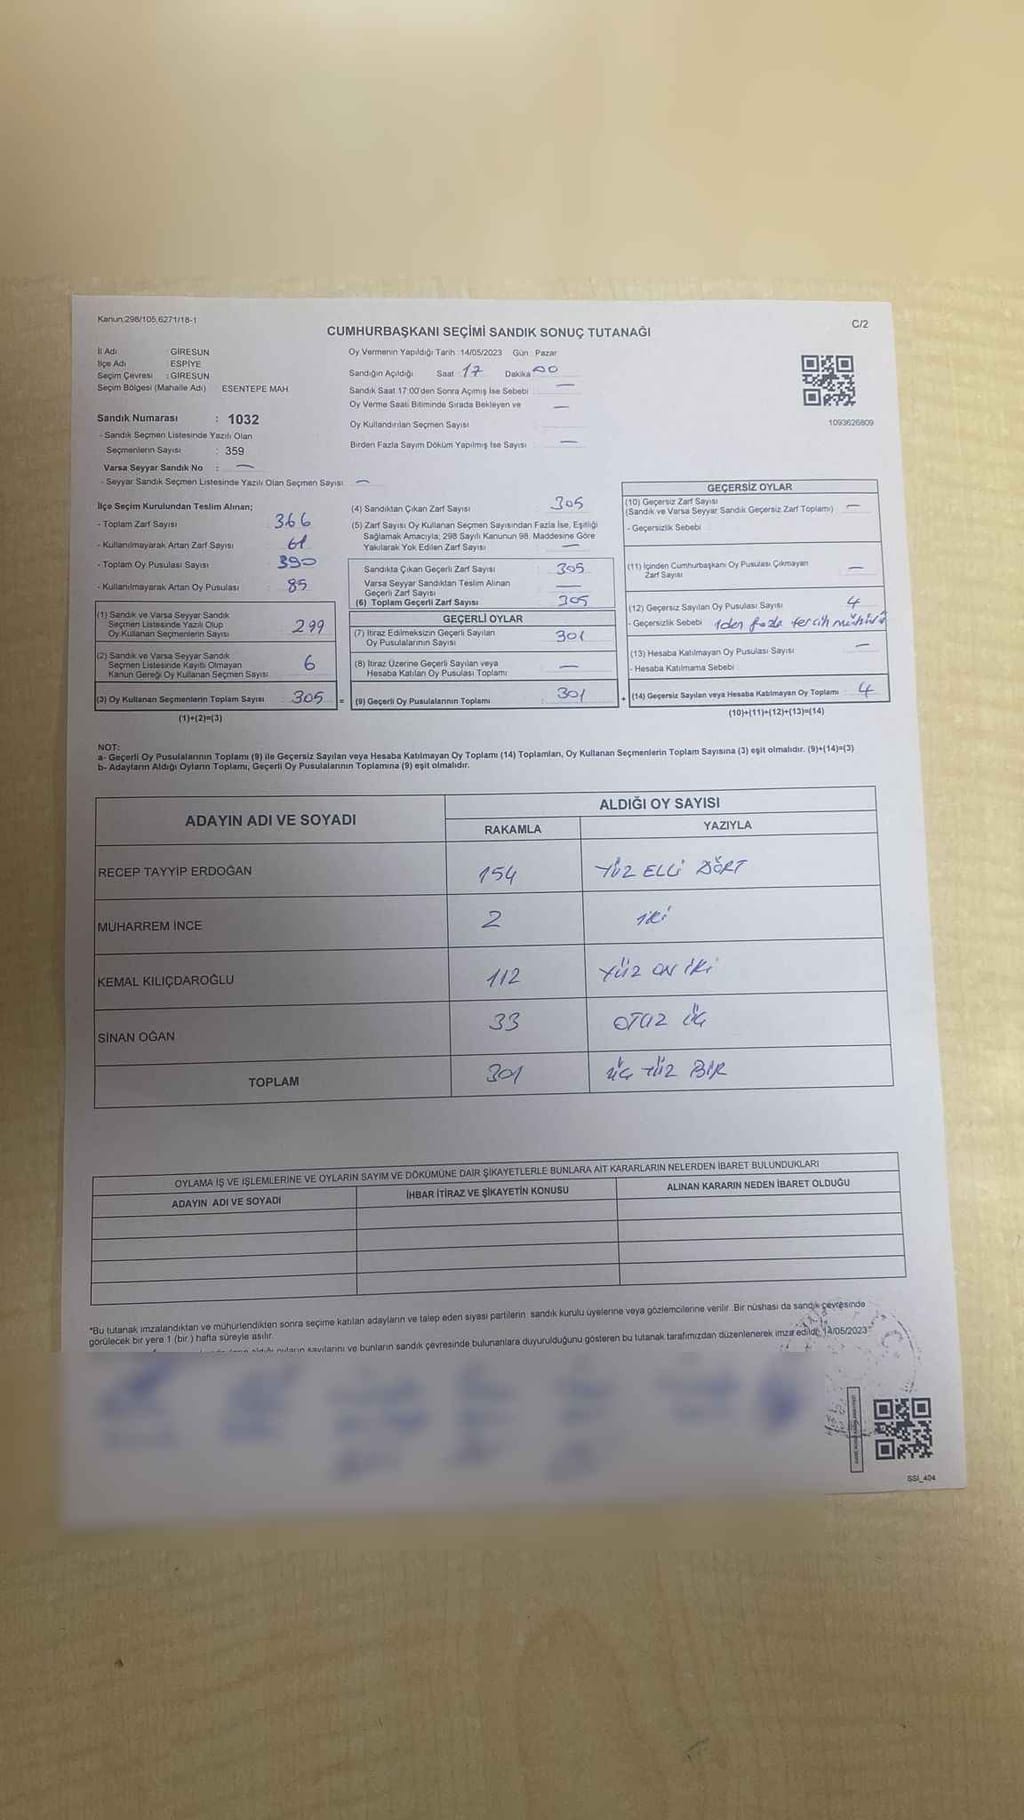 Kanun:298/105,6271/18-1
CUMHURBAŞKANI SEÇİMİ SANDIK SONUÇ TUTANAĞI
C/2
İl Adı : GİRESUN
İlçe Adı : ESPİYE
Seçim Çevresi : GİRESUN
Seçim Bölgesi (Mahalle Adı) ESENTEPE MAH
Oy Vermenin Yapıldığı Tarih :14/05/2023 Gün : Pazar
Sandığın Açıldığı Saat : 17 Dakika 00
Sandık Saat 17:00'den Sonra Açmış İse Sebebi : —
Oy Verme Saati Bitiminde Sırada Bekleyen ve —
Oy Kullandırılan Seçmen Sayısı
Birden Fazla Sayım Döküm Yapılmış İse Sayısı —
1093626809
Sandık Numarası : 1032
- Sandık Seçmen Listesinde Yazılı Olan
Seçmenlerin Sayısı : 359
Varsa Seyyar Sandık No : —
- Seyyar Sandık Seçmen Listesinde Yazılı Olan Seçmen Sayısı: —
İlçe Seçim Kurulundan Teslim Alınan;
- Toplam Zarf Sayısı 366
- Kullanılmayarak Artan Zarf Sayısı 61
- Toplam Oy Pusulası Sayısı 390
- Kullanılmayarak Artan Oy Pusulası 85
(1) Sandık ve Varsa Seyyar Sandık
Seçmen Listesinde Yazılı Olup
Oy Kullanan Seçmenlerin Sayısı 299
(2) Sandık ve Varsa Seyyar Sandık
Seçmen Listesinde Kayıtlı Olmayan
Kanun Gereği Oy Kullanan Seçmen Sayısı 6
(3) Oy Kullanan Seçmenlerin Toplam Sayısı 305 =
(1)+(2)=(3)
(4) Sandıktan Çıkan Zarf Sayısı 305
(5) Zarf Sayısı Oy Kullanan Seçmen Sayısından Fazla İse, Eşitliği
Sağlamak Amacıyla; 298 Sayılı Kanunun 98. Maddesine Göre
Yakılarak Yok Edilen Zarf Sayısı —
Sandıkta Çıkan Geçerli Zarf Sayısı 305
Varsa Seyyar Sandıktan Teslim Alınan
Geçerli Zarf Sayısı —
(6) Toplam Geçerli Zarf Sayısı 305
GEÇERLİ OYLAR
(7) İtiraz Edilmeksizin Geçerli Sayılan
Oy Pusulalarının Sayısı 301
(8) İtiraz Üzerine Geçerli Sayılan veya
Hesaba Katılan Oy Pusulası Toplamı —
(9) Geçerli Oy Pusulalarının Toplamı : 301 +
GEÇERSİZ OYLAR
(10) Geçersiz Zarf Sayısı
(Sandık ve Varsa Seyyar Sandık Geçersiz Zarf Toplamı) —
- Geçersizlik Sebebi
(11) İçinden Cumhurbaşkanı Oy Pusulası Çıkmayan
Zarf Sayısı —
(12) Geçersiz Sayılan Oy Pusulası Sayısı 4
- Geçersizlik Sebebi 1den fazla tercih mührü
(13) Hesaba Katılmayan Oy Pusulası Sayısı —
- Hesaba Katılmama Sebebi
(14) Geçersiz Sayılan veya Hesaba Katılmayan Oy Toplamı : 4
(10)+(11)+(12)+(13)=(14)
NOT:
a- Geçerli Oy Pusulalarının Toplamı (9) ile Geçersiz Sayılan veya Hesaba Katılmayan Oy Toplamı (14) Toplamları, Oy Kullanan Seçmenlerin Toplam Sayısına (3) eşit olmalıdır. (9)+(14)=(3)
b- Adayların Aldığı Oyların Toplamı; Geçerli Oy Pusulalarının Toplamına (9) eşit olmalıdır.
ADAYIN ADI VE SOYADI
ALDIĞI OY SAYISI
RAKAMLA YAZIYLA
RECEP TAYYİP ERDOĞAN 154 YÜZ ELLİ DÖRT
MUHARREM İNCE 2 İKİ
KEMAL KILIÇDAROĞLU 112 YÜZ ON İKİ
SİNAN OĞAN 33 OTUZ ÜÇ
TOPLAM 301 ÜÇ YÜZ BİR
OYLAMA İŞ VE İŞLEMLERİNE VE OYLARIN SAYIM VE DÖKÜMÜNE DAİR ŞİKAYETLERLE BUNLARA AİT KARARLARIN NELERDEN İBARET BULUNDUKLARI
ADAYIN ADI VE SOYADI İHBAR İTİRAZ VE ŞİKAYETİN KONUSU ALINAN KARARIN NEDEN İBARET OLDUĞU
*Bu tutanak imzalandıktan ve mühürlendikten sonra seçime katılan adayların ve talep eden siyasi partilerin sandık kurulu üyelerine veya gözlemcilerine verilir. Bir nüshası da sandık çevresinde
görülecek bir yere 1 (bir ) hafta süreyle asılır.
sayılarını ve bunların sandık çevresinde bulunanlara duyurulduğunu gösteren bu tutanak tarafımızdan düzenlenerek imza edildi. 14/05/2023
SSI_404